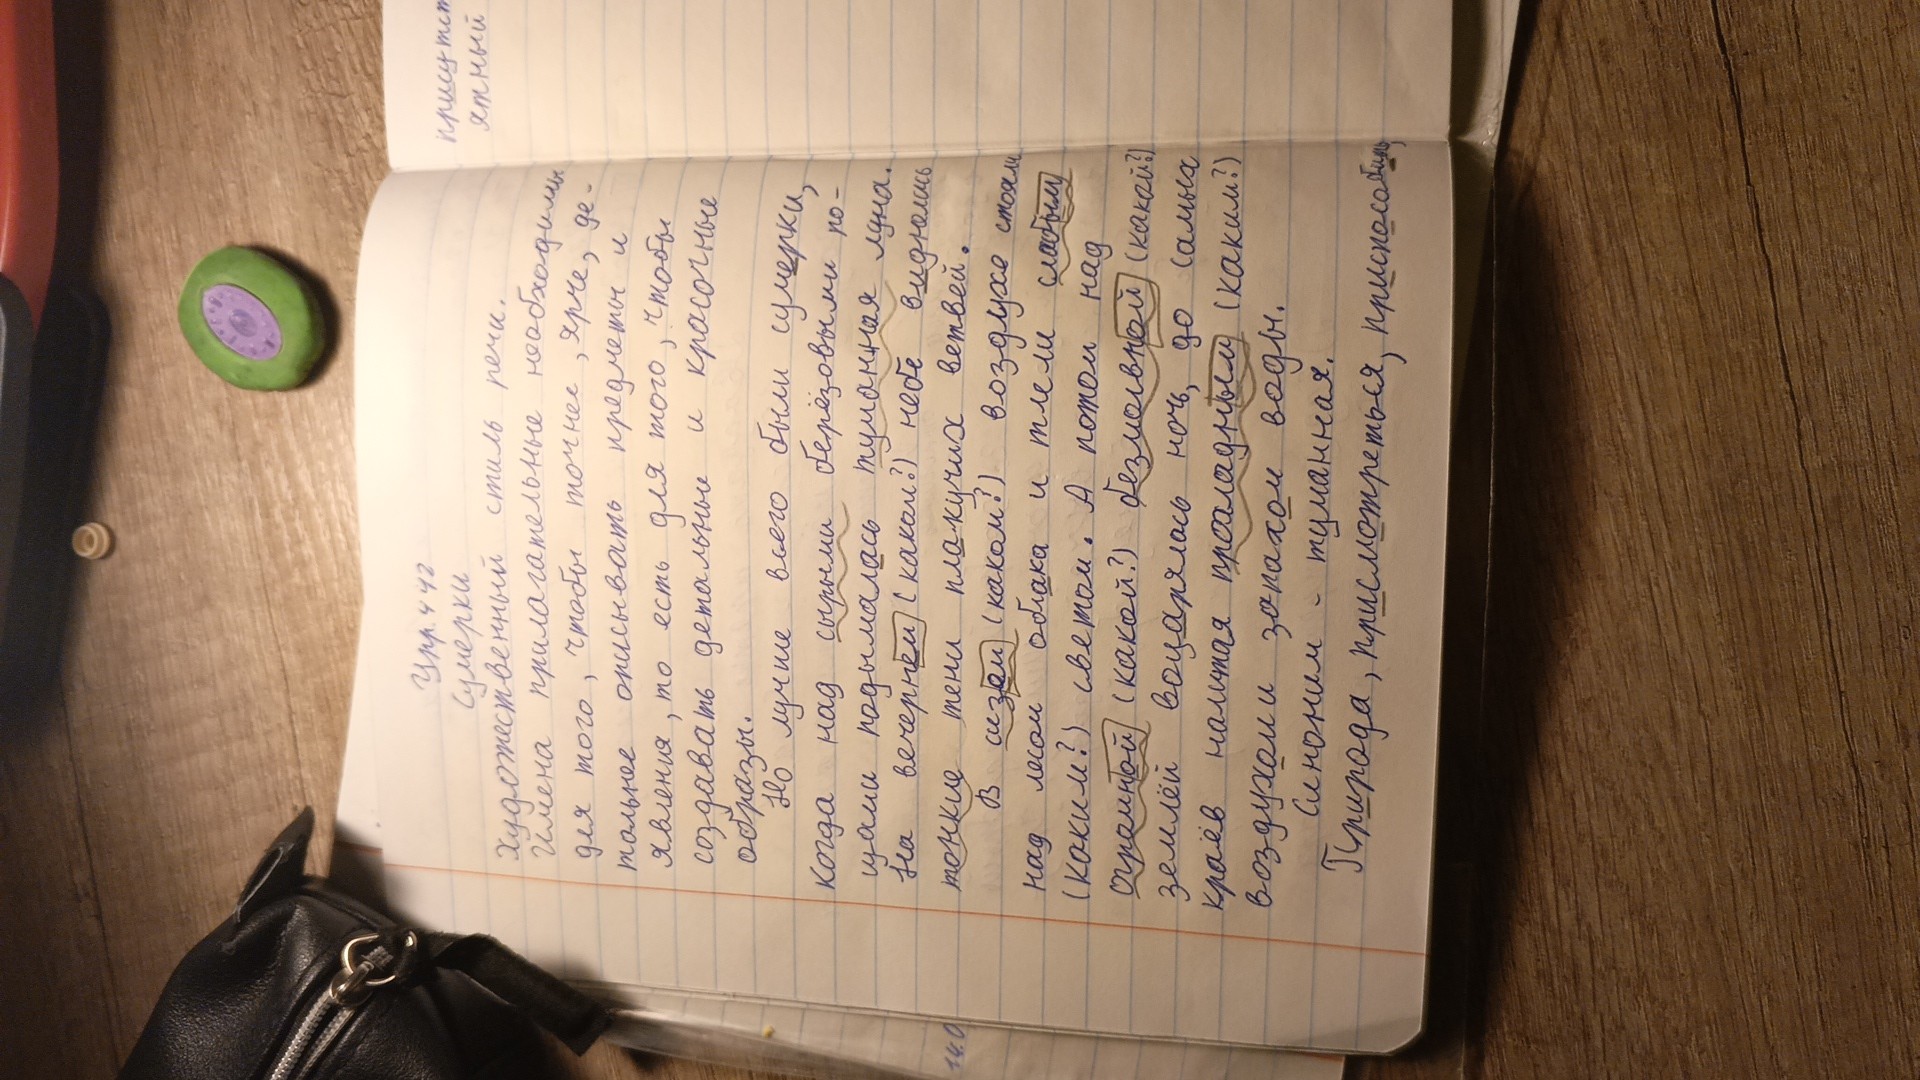 Упр. 442
Сумерки
Художественный стиль речи.
Имена прилагательные необходимы
для того, чтобы точнее, ярче, де-
тальнее описывать предметы и
явления, то есть для того, чтобы
создавать детальные и красочные
образы.
Но лучше всего были сумерки,
когда над сырыми берёзовыми ро-
щами подымалась туманная луна.
На вечернем (каком?) небе виднелись
тонкие тени плакучих ветвей.
В сизом (каком?) воздухе стояли
над лесом облака и тлели слабым
(каким?) светом. А потом над
огромной (какой?) безмолвной (какой?)
землёй воцарялась ночь, до самых
краёв налитая прохладным (каким?)
воздухом и запахом воды.
Синоним - туманная.
Природа, присмотреться, приспособить,
присутст
ятный
14.0